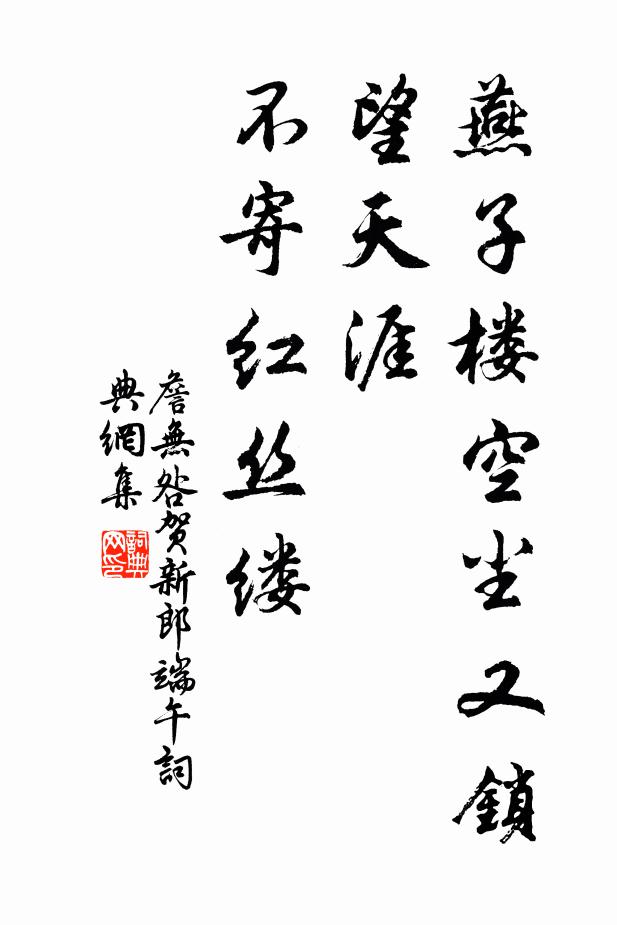 燕子楼空尘又鎖
望天涯
不寄红丝缕
詹無咎贺新郎端午詞
典網集
詞典网印